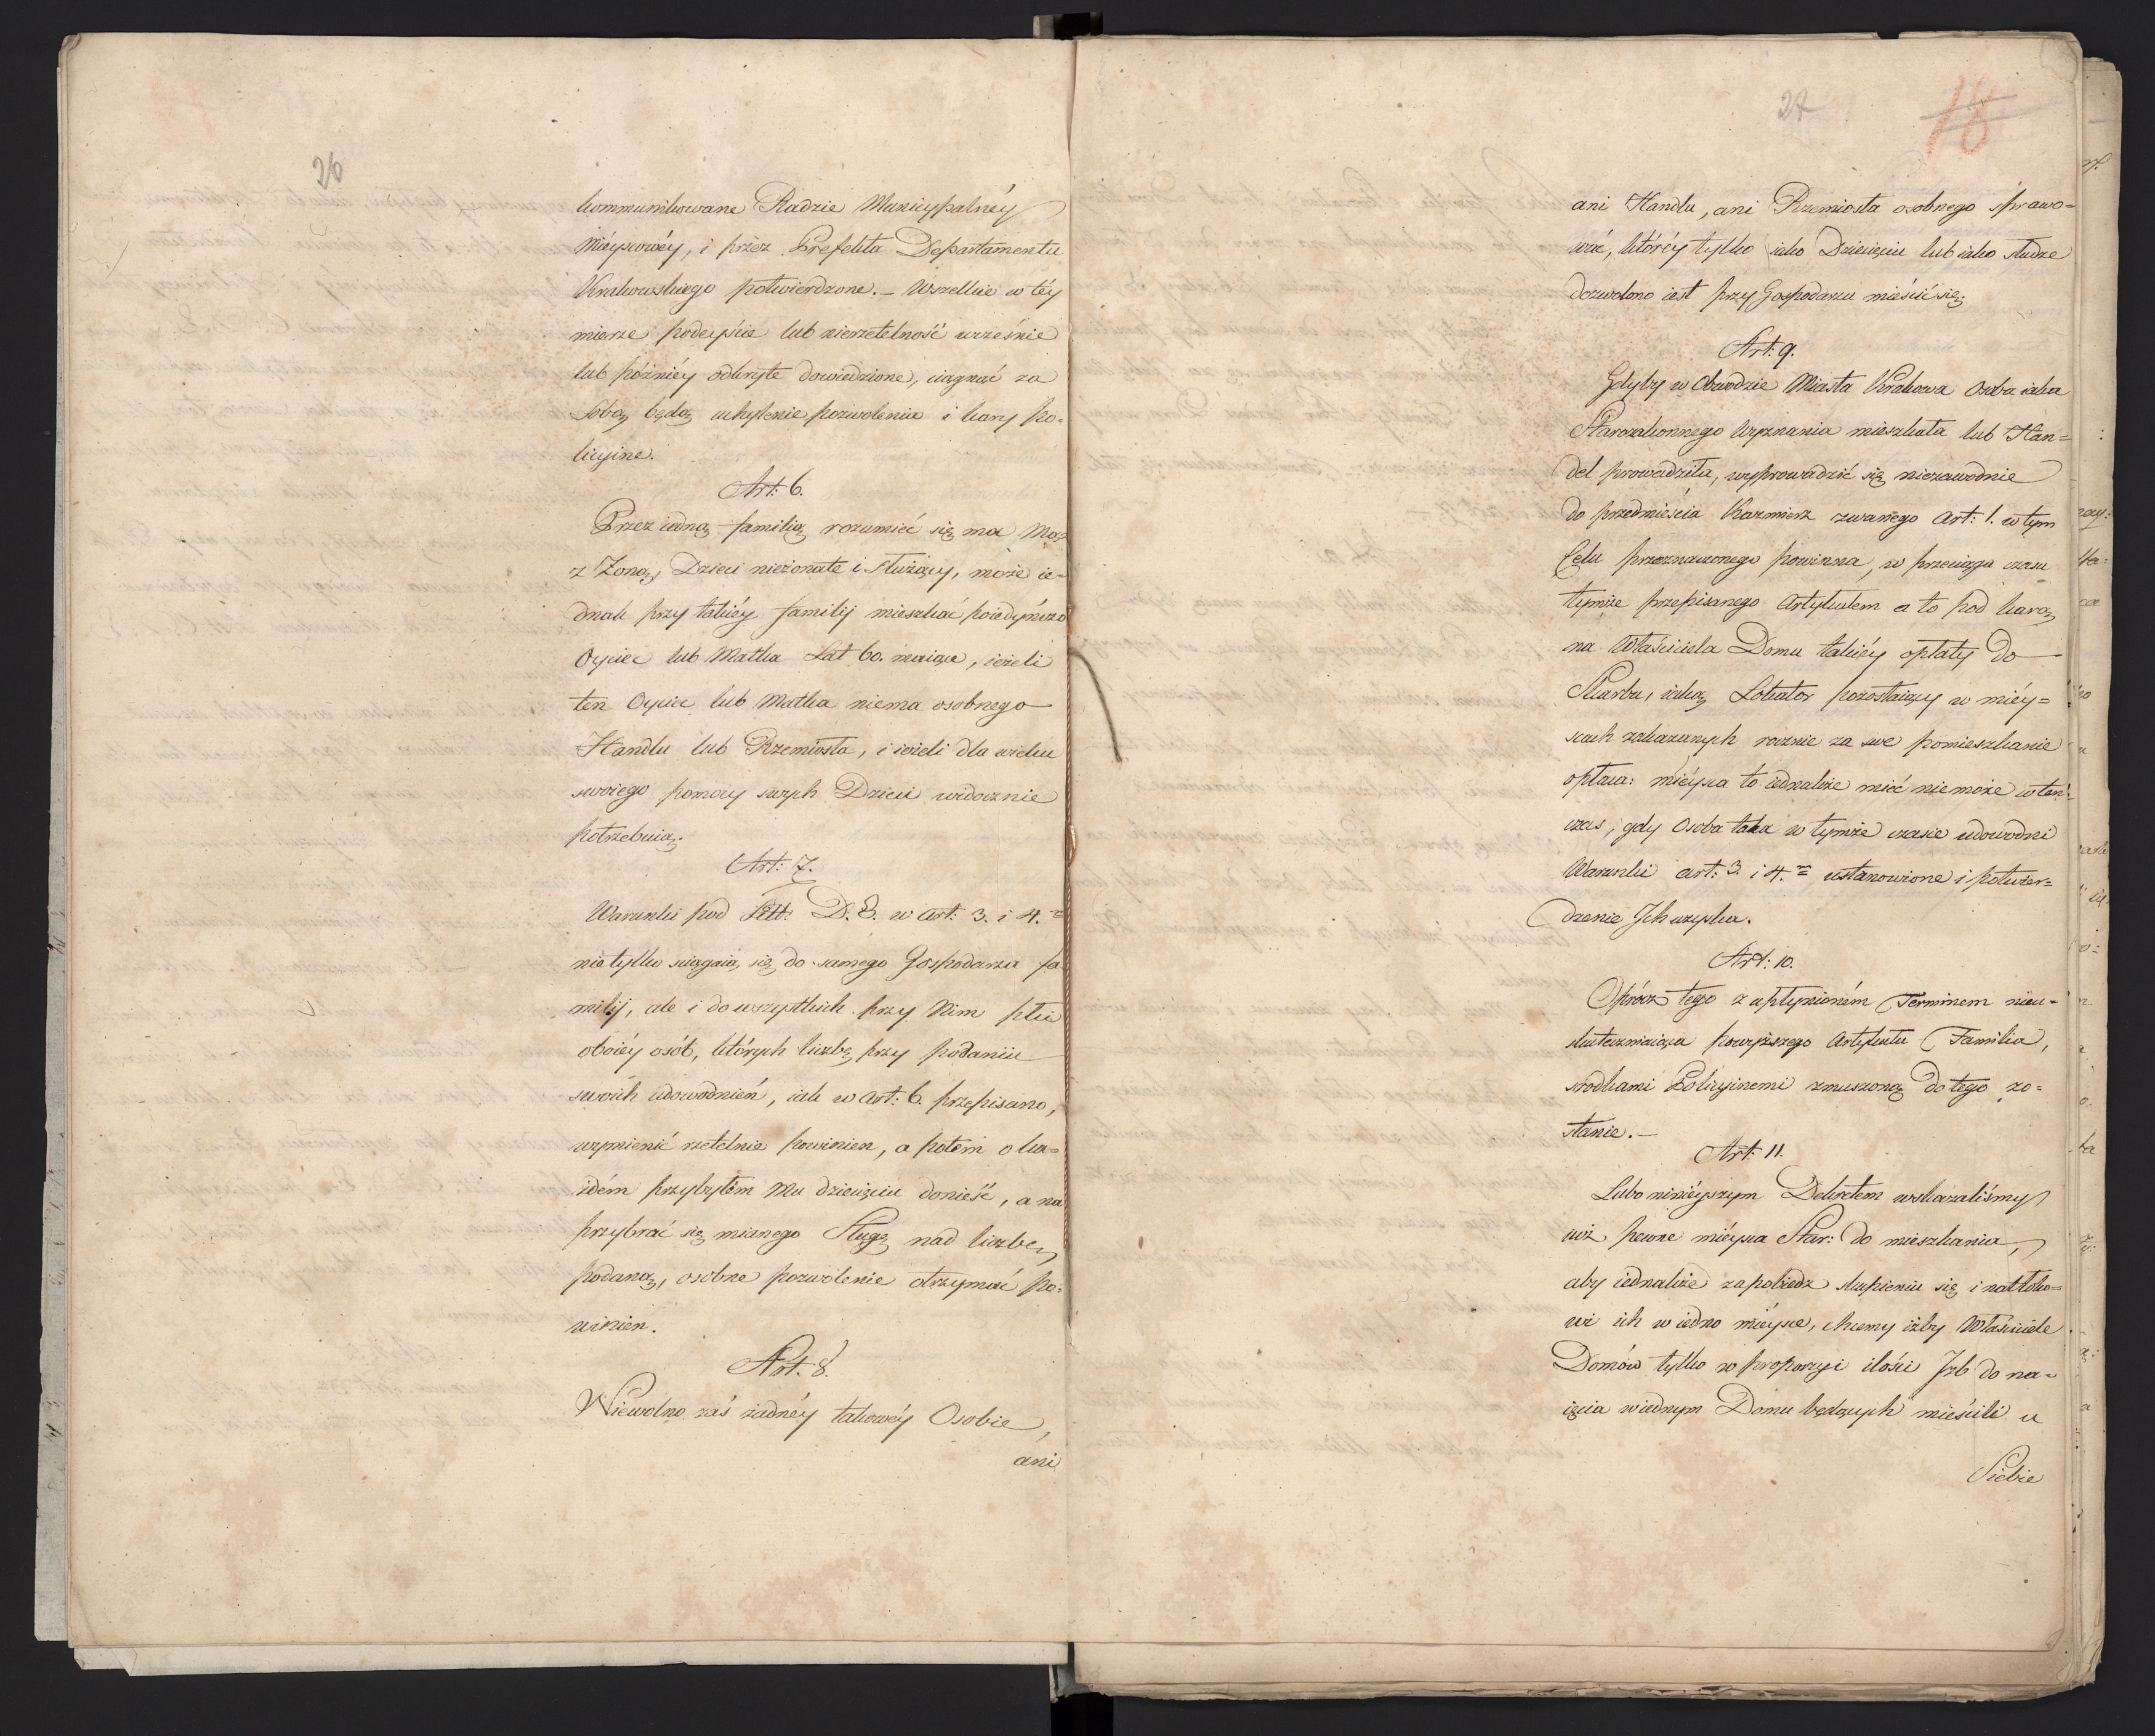 26
kommunikowane Radzie Municypalnéy
Miéyscowéy, i przez Prefekta Departamentu
Krakowskiego potwierdzone. – Wszelkie w téy
mierze podeyście lub nierzetelność wcześnie
lub późniéy odkryte dowiedzione, ciągnąć za
Sobą będą uchylenie pozwolenia i kary Po-
licyine.
Art: 6.
Przez iedną familią rozumieć się ma Mąż
z Zoną, Dzieci nieżonate i Służący, może ie-
dnak przy takiéy familij mieszkać poiedyńczo
Oyciec lub Matka Lat 60. maiące, ieżeli
ten Oyciec lub Matka niema osobnego
Handlu lub Rzemiosła, i ieżeli dla wieku
swoiego pomocy swych Dzieci widocznie
potrzebuią.
Art: 7.
Warunki pod Litt: D. E. w art: 3. i 4.
nietylko sciągaią się do samego Gospodarza fa
milij, ale i do wszystkich przy Nim płci
oboiéy osób, których liczbę przy podaniu
swoich udowodnień, iak w art: 6. przepisano,
wymienić rzetelnie powinien, a potem o ka-
żdém przybyłém Mu dziecięciu donieść, a na
przybrać się mianego Sługę nad liczbę
podaną, osobne pozwolenie otrzymać po-
winien.
Art. 8.
Niewolno zaś żadnéy takowéy Osobie,
ani
27
18
ani Handlu, ani Rzemiosła osobnego sprawo-
wać, któréy tylko iako Dziecięciu lub iako słudze
dozwolono iest przy Gospodarzu mieścić się.
Art: 9.
Gdyby w Obwodzie Miasta Krakowa Osoba iaka
Starozakonnego Wyznania mieszkała lub Han-
del prowadziła, wyprowadzić się niezawodnie
do przedmieścia Kazmierz zwanego art: 1. w tym
Celu przeznaczonego powinna, w przeciągu czasu
tymże przepisanego artykułem a to pod karą
na Właściciela Domu takiéy opłaty do
Skarbu, iaką Lokator pozostaiący w miéy-
scach zakazanych rocznie za swe pomieszkanie
opłaca: miéysca to iednakże mieć nie może wten-
czas, gdy Osoba taka w tymże czasie udowodni
Warunki art: 3. i 4. ustanowione i potwier-
dzenie Ich uzyska.
Art: 10.
Oprócz tego z upłynioném Terminem nieu-
skuteczniaiąca powyższego artykułu Familia,
srodkami Policyinemi zmuszoną do tego zo-
stanie. –
Art: 11.
Lubo ninieyszym Dekretem wskazaliśmy
iuż pewne miéysca Star: do mieszkania,
aby iednakże zapobiedz skupieniu się i natłoko-
wi ich w iedno miéysce, chcemy iżby Właściciele
Domów tylko w proporcyi ilości Izb do na-
ięcia w iednym Domu będących mieścili u
Siebie